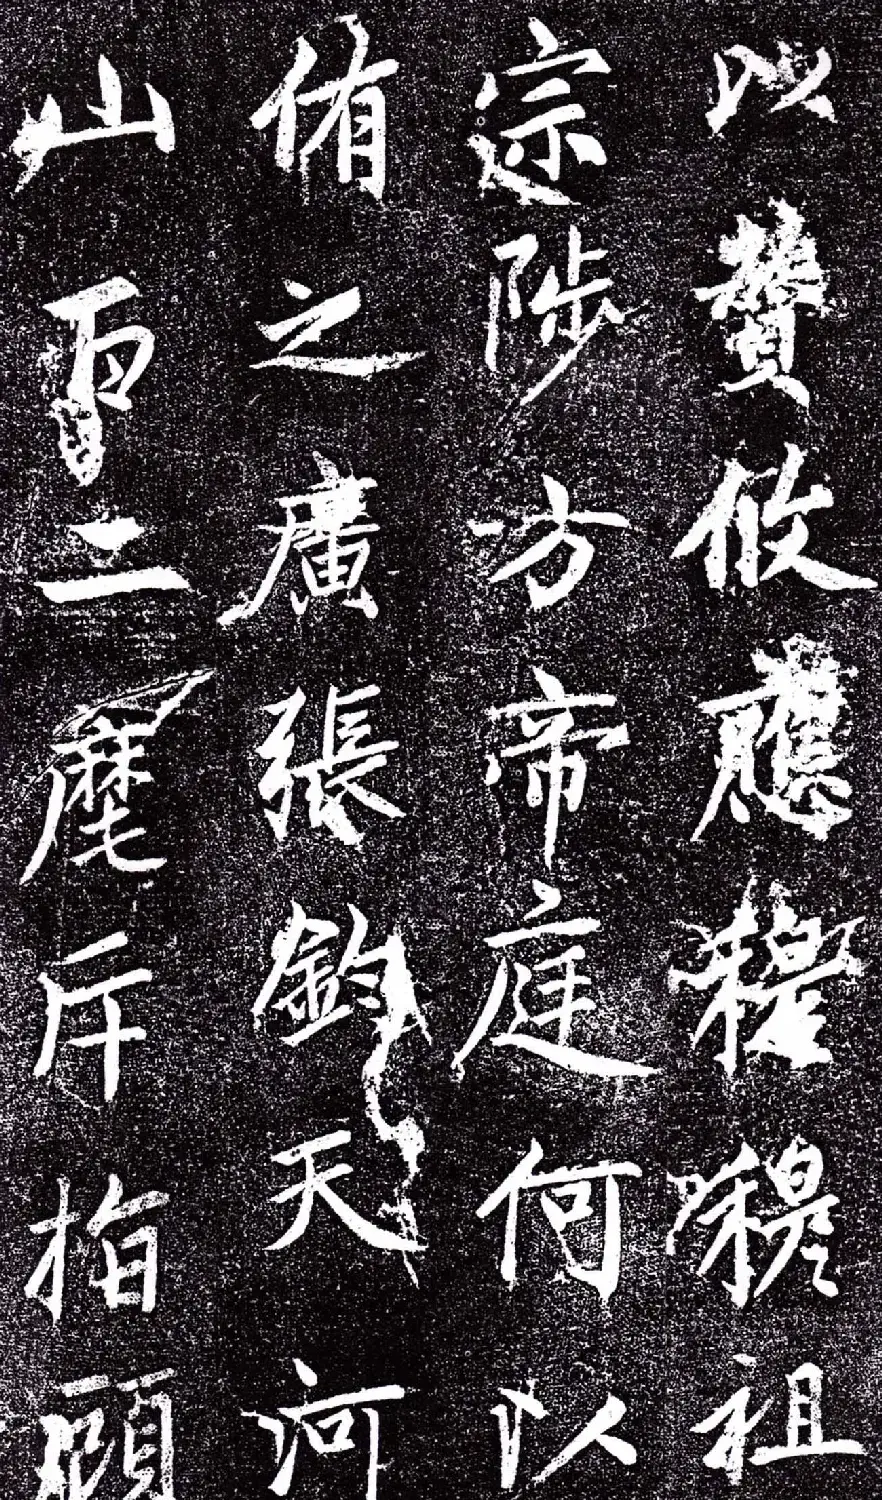 以贊攸應穆穆祖
宗陟方帝庭何以
侑之廣張鈞天河
山百二麾斥指顧